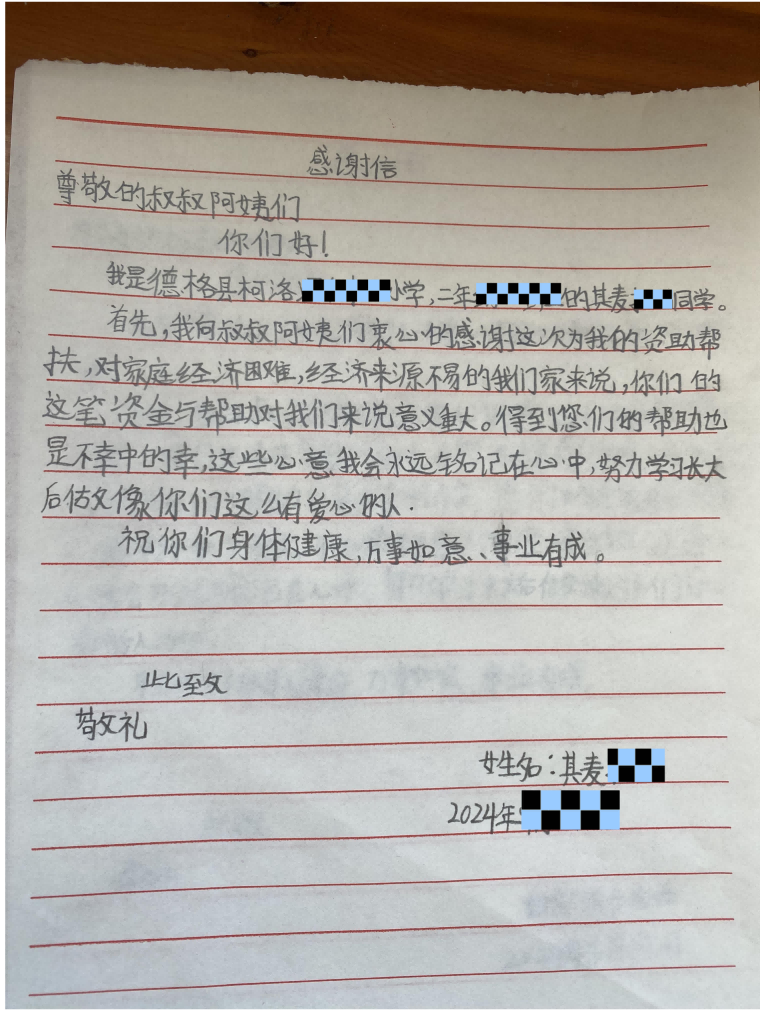 感谢信
尊敬的叔叔阿姨们
你们好!
我是德格县柯洛小学,二年的其麦同学。
首先,我向叔叔阿姨们衷心的感谢这次为我的资助帮
扶,对家庭经济困难,经济来源不易的我们家来说,你们的
这笔资金与帮助对我们来说意义重大。得到您们的帮助也
是不幸中的幸,这些心意我会永远铭记在心中,努力学习长大
后估文像你们这么有爱心的人.
祝你们身体健康,万事如意、事业有成。
此至文
敬礼
姓名:其麦
2024年